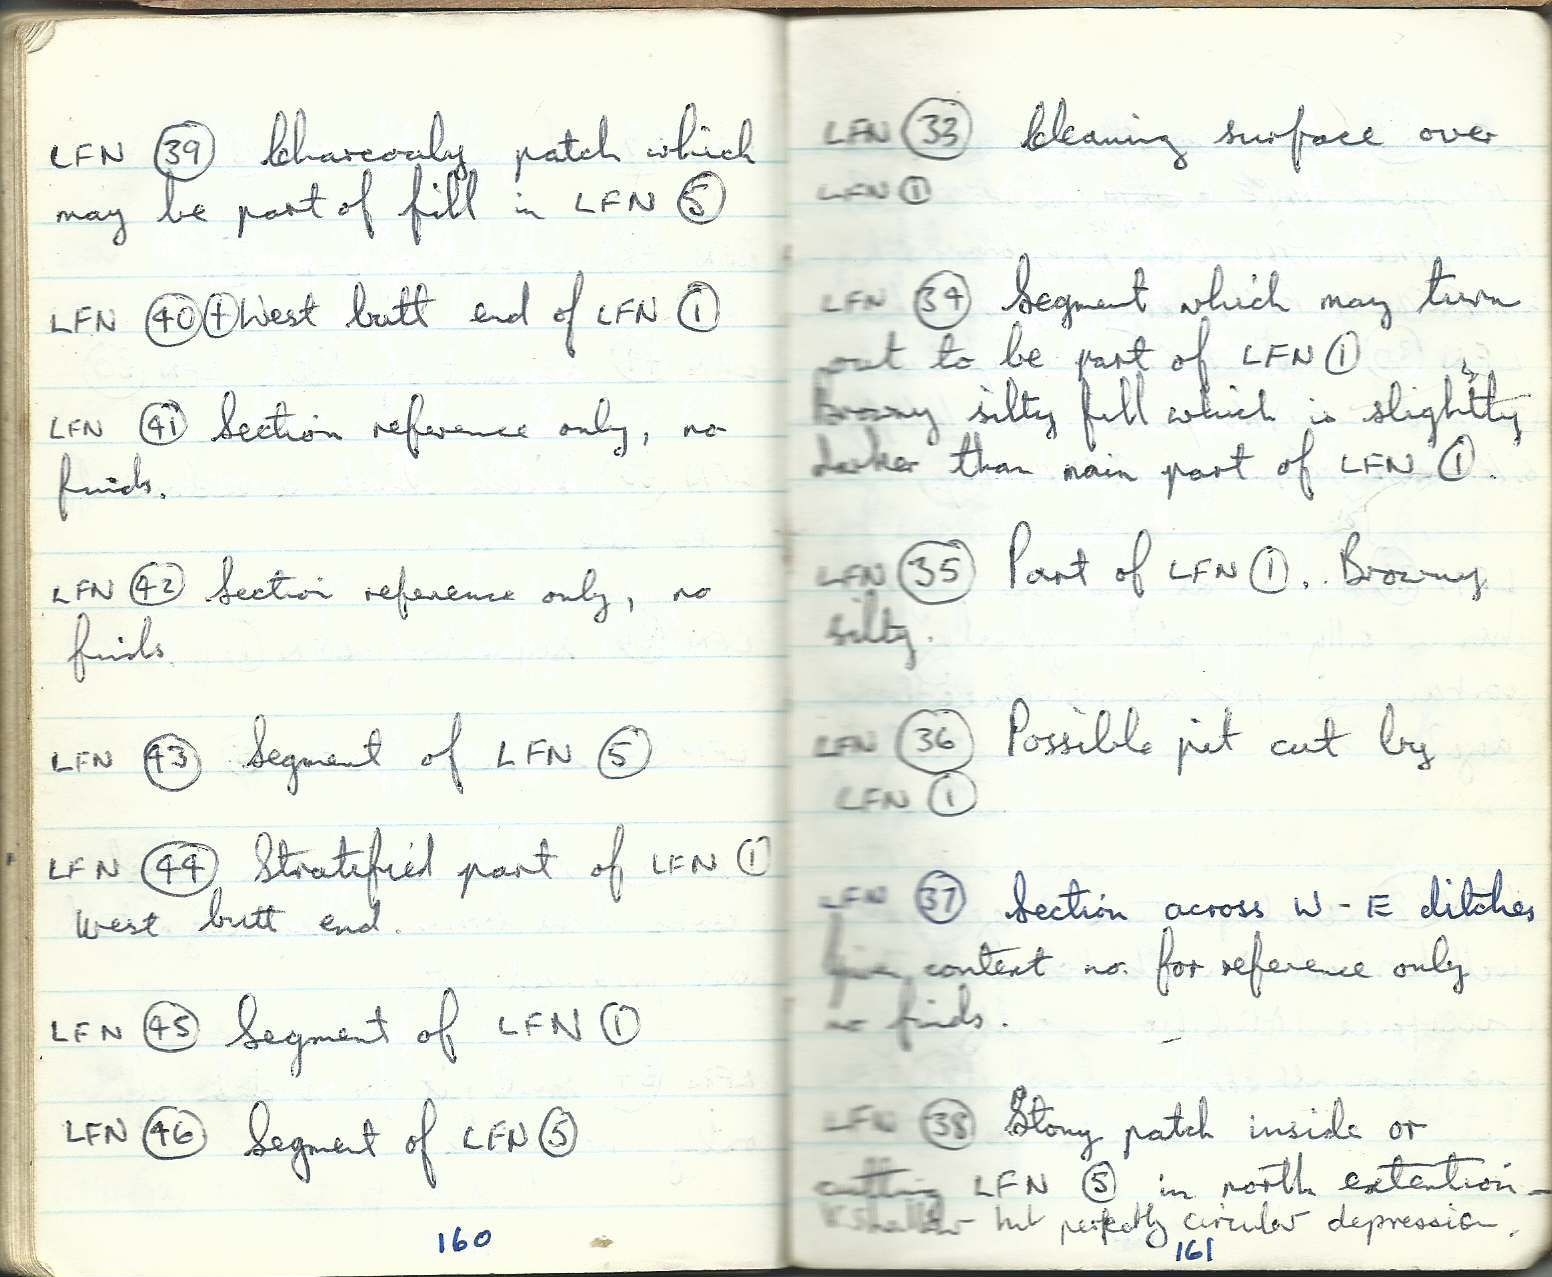 LFN 39 Charcoaly patch which
may be part of fill in LFN 5
LFN 40 + West butt end of LFN 1
LFN 41 Section reference only, no
finds.
LFN 42 Section reference only, no
finds.
LFN 43 Segment of LFN 5
LFN 44 Stratified part of LFN 1
West butt end.
LFN 45 Segment of LFN 1
LFN 46 Segment of LFN 5
160
LFN 33 Cleaning surface over
LFN 1
LFN 34 Segment which may turn
out to be part of LFN 1
Browny silty fill which is slightly
darker than main part of LFN 1.
LFN 35 Part of LFN 1. Browny
silty.
LFN 36 Possible pit cut by
LFN 1
LFN 37 Section across W-E ditches
Given context no. for reference only
no finds.
LFN 38 Stony patch inside or
cutting LFN 5 in north extention -
V. shallow but perfectly circular depression.
161